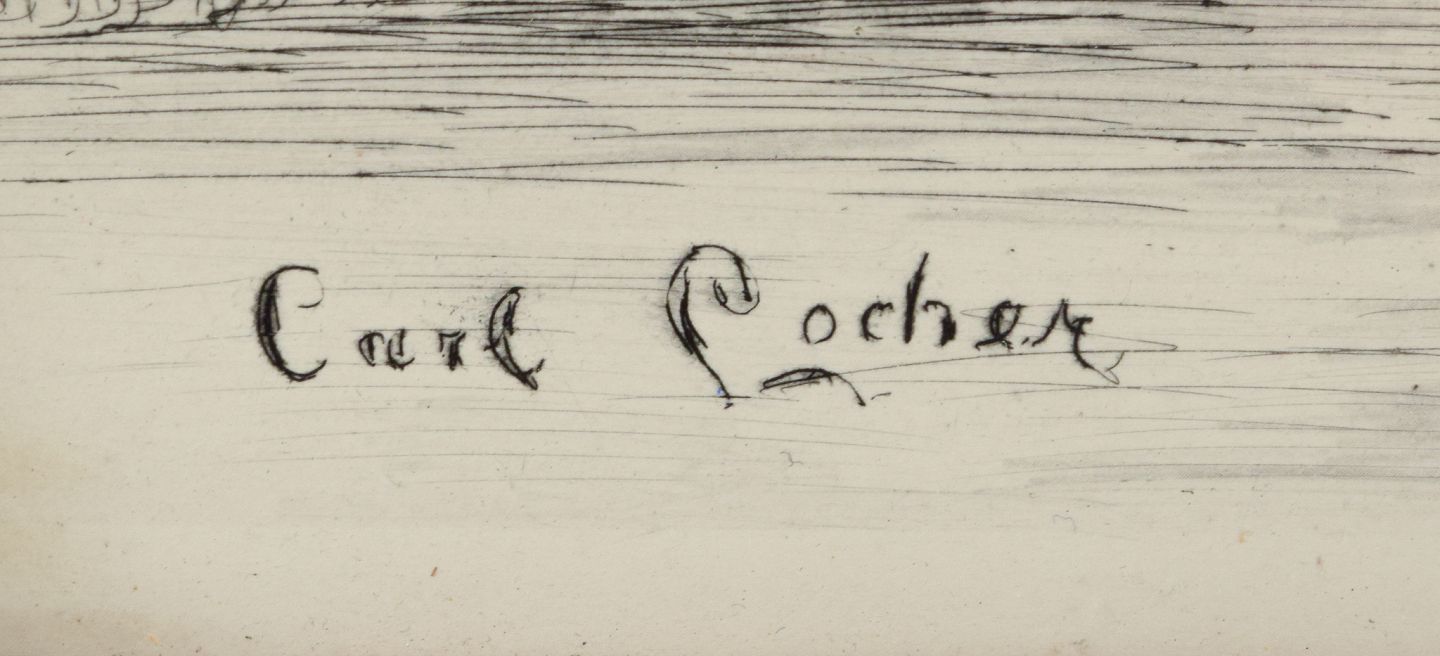 Carl Locher